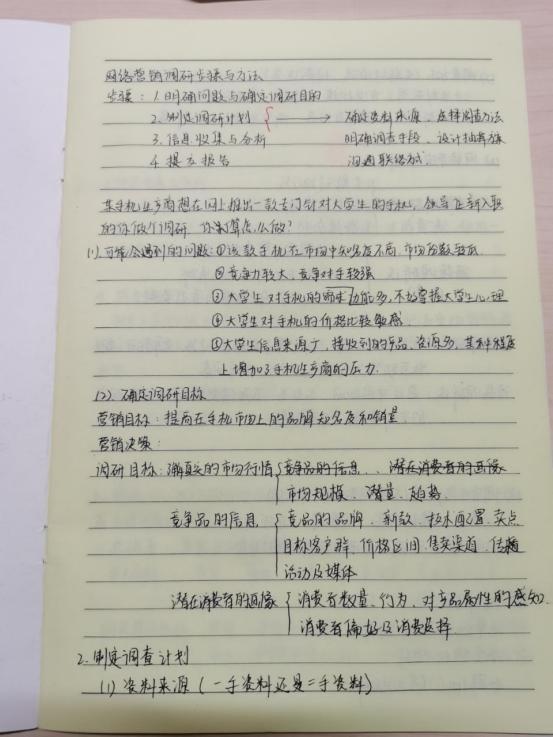 网络营销调研步骤与方法
步骤：1.明确问题与确定调研目的
2.制定调研计划 { → 确定资料来源、选择调查方法
3.信息收集与分析 明确调查手段、设计抽样方案
4.提交报告 沟通联络方式
某手机生产商想在网上推出一款专门针对大学生的手机，领导让新入职
的你做个调研，你打算怎么做？
(1)可能会遇到的问题：①该款手机在市场中知名度不高，市场份额
②竞争力较大，竞争对手较强
③大学生对手机的需求功能多，不好掌握大学生心理
④大学生对手机的价格比较敏感
⑤大学生信息来源广，接收到的产品、资源多，某种程度
上增加了手机生产商的压力
(2).确定调研目标
营销目标：提高在手机市场上的品牌知名度和销量
营销决策：
调研目标：了解真实的市场行情 { 竞争品的信息、潜在消费者的画像
市场规模、潜量、趋势
竞争品的信息 { 竞品的品牌、新款、技术配置、卖点
目标客户群、价格区间、售卖渠道、传播
活动及媒体
潜在消费者的画像 { 消费者数量、行为、对产品属性的感知、
消费者偏好及消费选择
2.制定调查计划
(1)资料来源(一手资料还是二手资料)